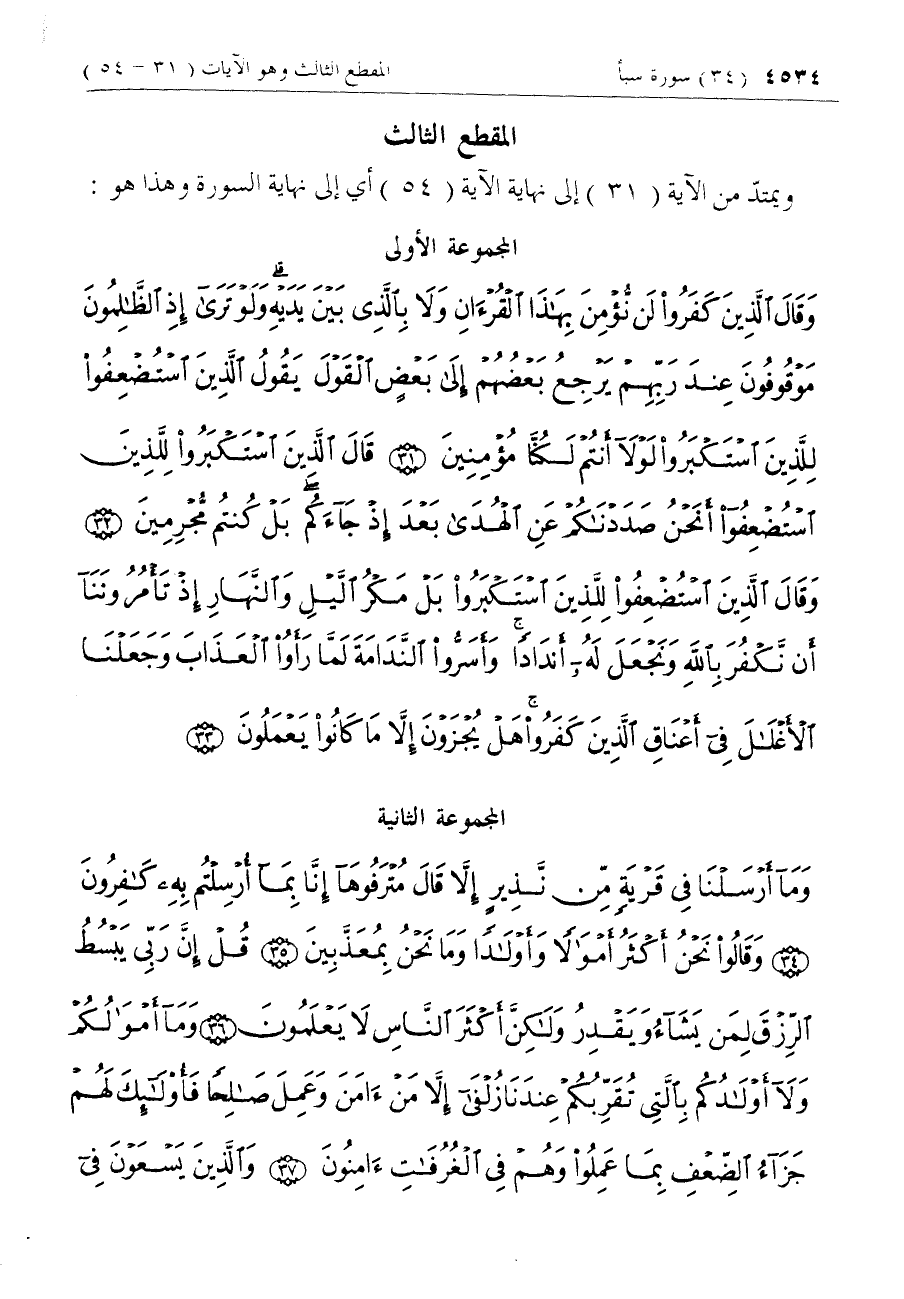 ٤٥٣٤ (٣٤) سورة سبأ المقطع الثالث وهو الآيات (٣١ - ٥٤)
المقطع الثالث
ويمتدّ من الآية (٣١) إلى نهاية الآية (٥٤) أي إلى نهاية السورة وهذا هو :
المجموعة الأولى
وَقَالَ ٱلَّذِينَ كَفَرُوا۟ لَن نُّؤْمِنَ بِهَـٰذَا ٱلْقُرْءَانِ وَلَا بِٱلَّذِى بَيْنَ يَدَيْهِ ۗ وَلَوْ تَرَىٰٓ إِذِ ٱلظَّـٰلِمُونَ
مَوْقُوفُونَ عِندَ رَبِّهِمْ يَرْجِعُ بَعْضُهُمْ إِلَىٰ بَعْضٍ ٱلْقَوْلَ يَقُولُ ٱلَّذِينَ ٱسْتُضْعِفُوا۟
لِلَّذِينَ ٱسْتَكْبَرُوا۟ لَوْلَآ أَنتُمْ لَكُنَّا مُؤْمِنِينَ ﴿٣١﴾ قَالَ ٱلَّذِينَ ٱسْتَكْبَرُوا۟ لِلَّذِينَ
ٱسْتُضْعِفُوٓا۟ أَنَحْنُ صَدَدْنَـٰكُمْ عَنِ ٱلْهُدَىٰ بَعْدَ إِذْ جَآءَكُم ۖ بَلْ كُنتُم مُّجْرِمِينَ ﴿٣٢﴾
وَقَالَ ٱلَّذِينَ ٱسْتُضْعِفُوا۟ لِلَّذِينَ ٱسْتَكْبَرُوا۟ بَلْ مَكْرُ ٱلَّيْلِ وَٱلنَّهَارِ إِذْ تَأْمُرُونَنَآ
أَن نَّكْفُرَ بِٱللَّهِ وَنَجْعَلَ لَهُۥٓ أَندَادًا ۚ وَأَسَرُّوا۟ ٱلنَّدَامَةَ لَمَّا رَأَوُا۟ ٱلْعَذَابَ وَجَعَلْنَا
ٱلْأَغْلَـٰلَ فِىٓ أَعْنَاقِ ٱلَّذِينَ كَفَرُوا۟ ۚ هَلْ يُجْزَوْنَ إِلَّا مَا كَانُوا۟ يَعْمَلُونَ ﴿٣٣﴾
المجموعة الثانية
وَمَآ أَرْسَلْنَا فِى قَرْيَةٍ مِّن نَّذِيرٍ إِلَّا قَالَ مُتْرَفُوهَآ إِنَّا بِمَآ أُرْسِلْتُم بِهِۦ كَـٰفِرُونَ
﴿٣٤﴾ وَقَالُوا۟ نَحْنُ أَكْثَرُ أَمْوَٰلًا وَأَوْلَـٰدًا وَمَا نَحْنُ بِمُعَذَّبِينَ ﴿٣٥﴾ قُلْ إِنَّ رَبِّى يَبْسُطُ
ٱلرِّزْقَ لِمَن يَشَآءُ وَيَقْدِرُ وَلَـٰكِنَّ أَكْثَرَ ٱلنَّاسِ لَا يَعْلَمُونَ ﴿٣٦﴾ وَمَآ أَمْوَٰلُكُمْ
وَلَآ أَوْلَـٰدُكُم بِٱلَّتِى تُقَرِّبُكُمْ عِندَنَا زُلْفَىٰٓ إِلَّا مَنْ ءَامَنَ وَعَمِلَ صَـٰلِحًا فَأُو۟لَـٰٓئِكَ لَهُمْ
جَزَآءُ ٱلضِّعْفِ بِمَا عَمِلُوا۟ وَهُمْ فِى ٱلْغُرُفَـٰتِ ءَامِنُونَ ﴿٣٧﴾ وَٱلَّذِينَ يَسْعَوْنَ فِىٓ